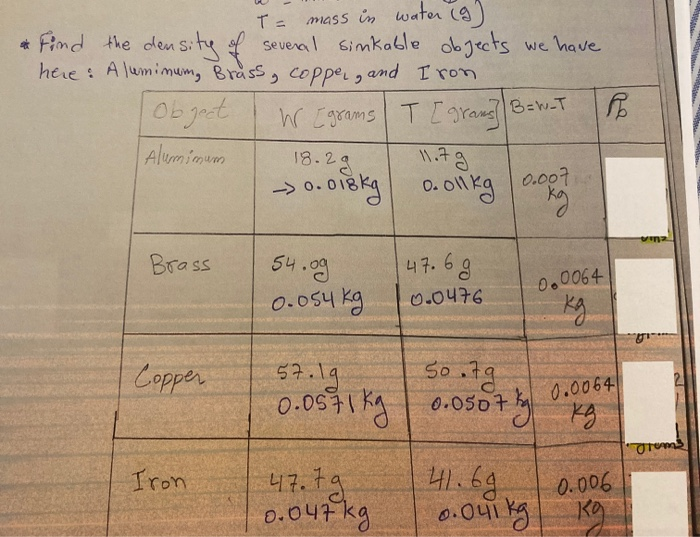 T = mass in water (g)
* Find the density of several sinkable objects we have
here : Aluminum, Brass, copper, and Iron
Object W [grams T [grams] B=W-T ρb
Aluminum 18.2g 11.7g
→ 0.018kg 0.011kg 0.007
kg
Brass 54.0g 47.6g 0.0064
0.054 kg 0.0476 kg
Copper 57.1g 50.7g 0.0064
0.0571 kg 0.0507 kg kg
Iron 47.7g 41.6g 0.006
0.047 kg 0.041 kg kg